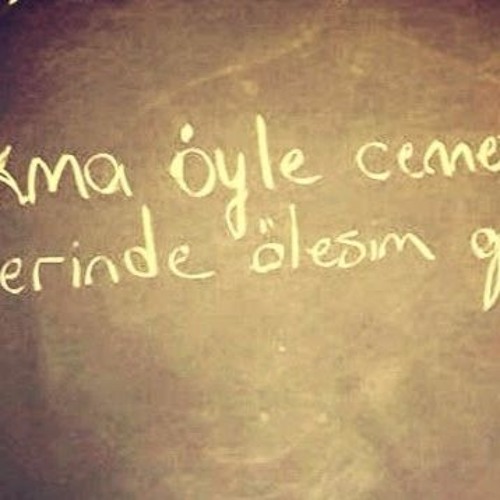 kma öyle cene
erinde ölesim g